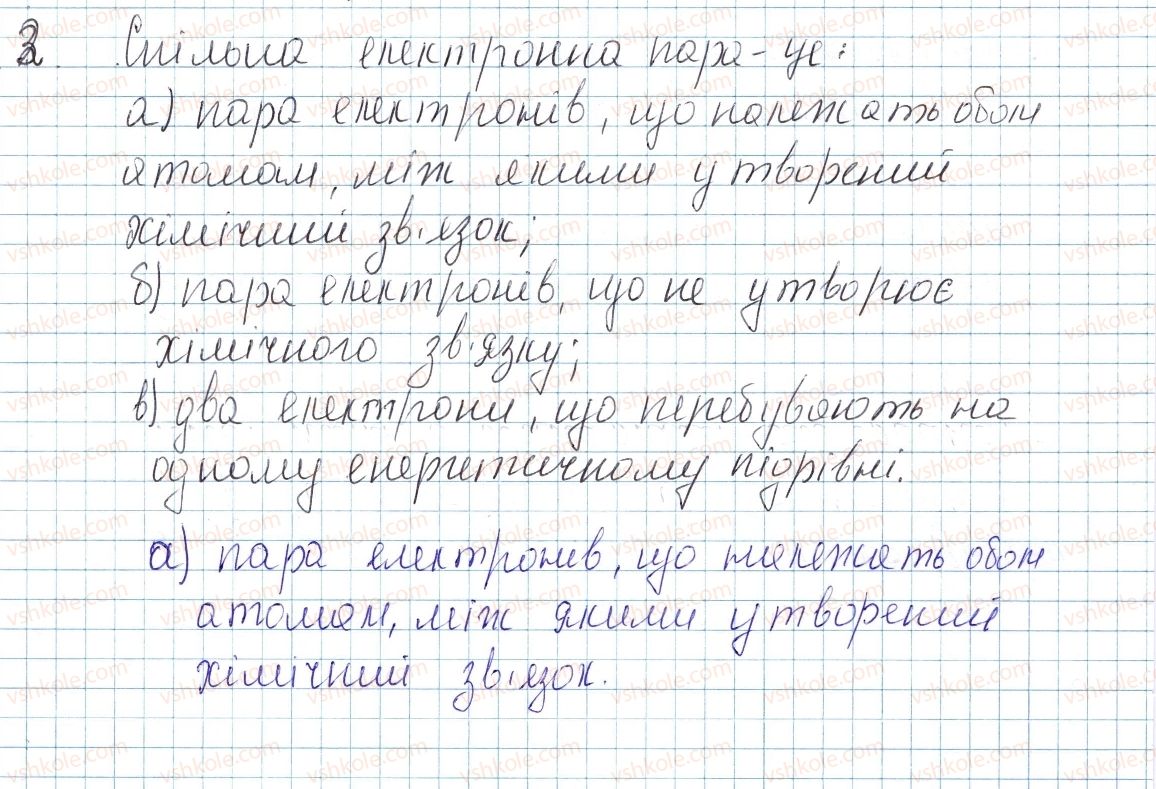 2. Спільна електронна пара - це:
а) пара електронів, що належать обом
атомам, між якими утворений
хімічний зв'язок;
б) пара електронів, що не утворює
хімічного зв'язку;
в) два електрони, що перебувають на
одному енергетичному підрівні.
а) пара електронів, що належать обом
атомам, між якими утворений
хімічний зв'язок.